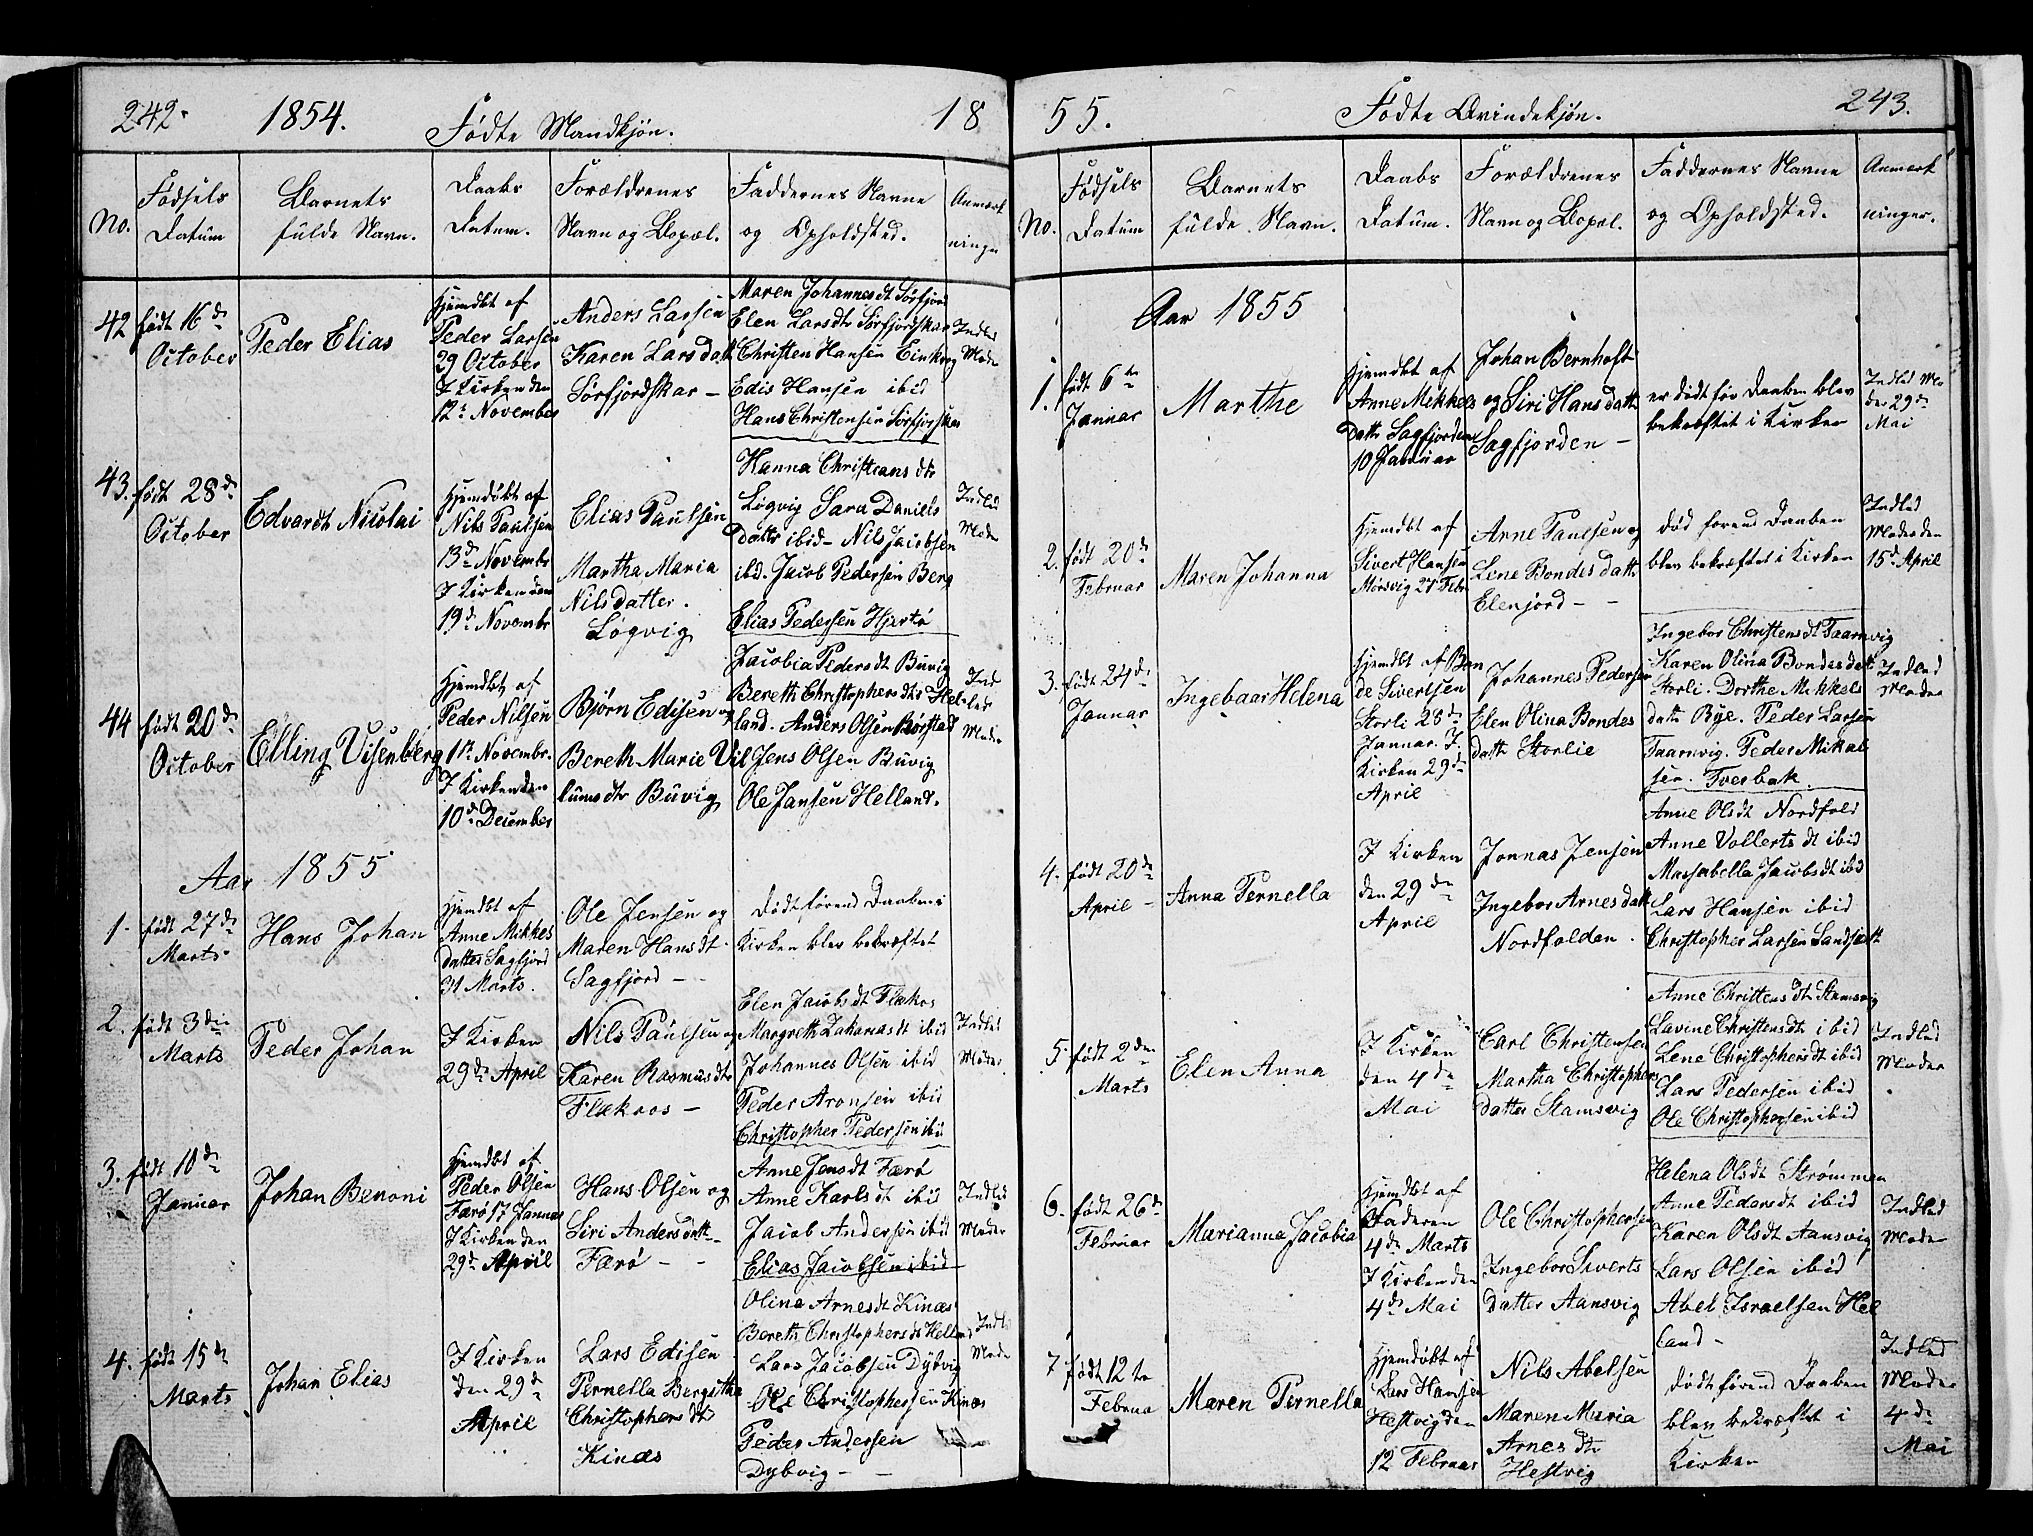 242.
1854.
Fødte Mandkjøn.
18
No.
Fødsels
Datum
Barnets
fulde Navn.
Daabs
Datum.
Forældrenes
Navn og Bopæl.
Faddernes Navne
og Opholdsted.
Anmærk
ninge
42
født 16de
October
Peder Elias
Hjemdbt af
Peder Larsen
29 October
I Kirken den
12te November
Anders Larsen
Karen Larsdatt
Sørfjordskar –
Maren Johannesdt Sørfjord
Elen Larsdtr Sørfjordskar
Christen Hansen
Edis Hansen ibid
Hans Christensen Sørfjorskar
Indled
Moder
43.
født 28de
October
Edvardt Nicolai
Hjemdøbt af
Nils Paulsen
13de Novembr
I Kirken den
19de Novembr
Elias Paulsen
Martha Maria
Nilsdatter.
Løgvig
Hanna Christiansdtr
Løgvig Sara Daniels
Dattr ibid – Nils Jacobsen
ibd. Jacob Pedersen Berg
Elias Pedersen Hjertø
Indled
Moder
44
født 20de
October
Elling Visenberg
Hjemdbt af
Peder Nilsen
1te Novembr.
I Kirken den
10de December
Bjørn Edisen og
Bereth Marie Vil
lumsdtr Buvig
Jacobia Pedersdt Buvig
Bereth Christophersdtr Hel
land. Anders Olsen Rørstad
Jens Olsen Buvig
Ole Jansen Helland.
Ind
led
Moder
Aar 1855
1.
født 27de
Marts.
Hans Johan
Hjemdbt af
Anne Mikkels
datter Sagfjord
31 Marts.
Ole Jensen og
Maren Hansdt
Sagfjord –
Død førend Daaben i
Kirken blev bekræftet
2.
født 3die
Marts
Peder Johan
I Kirken
29de April
Nils Paulsen og
Karen Rasmusdtr
Flækros –
Elen Jacobsdt Flækros
Margreth Zakariasdt ibid
Johannes Olsen ibid
Peder Aronsen ibid
Christopher Pedersen ibid
Indled
Moder
3.
født 10de
Januar
Johan Benoni
Hjemdbt af
Peder Olsen
Færø 17 Januar
I Kirken den
29de April
Hans Olsen og
Siri Andersdatt
Færø – –
Anne Jensdt Færø
Anne Karlsdt ibid
Jacob Andersen ibid
Elias Jacobsen ibid
Indled
Moder
4.
født 15de
Marts
Johan Elias
I Kirken
den 29de
April
Lars Edisen
Pernella Bergitha
Christophersdtr
Kinæs
Olina Arnesdt Kinæs
Bereth Christophersdt Helland
Lars Jacobsen Dybvig
Ole Christophersen Kinæs
Peder Andersen
Dybvig –
Indled
Moder
55.
Fødte Qvindekjøn.
243.
No.
Fødsels
Datum
Barnets
fulde Navn.
Daabs
Datum.
Forældrenes
Navn og Bopel.
Faddernes Navne
og Opholdsted.
Anmærk
ninger.
Aar 1855
1.
født 6te
Januar
Marthe
Hjemdbt af
Anne Mikkels
Dattr Sagfjorden
10 Januar
Johan Bernhoft
og Siri Hansdatt
Sagfjorden –
er død før Daaben blev
bekræftet i Kirken
Indled Mo
der 29de
Mai
2.
født 20de
Februar
Maren Johanna
Hjemdbt af
Sivert Hansen
Mørsvig 27 Febr
Arne Paulsen og
Lene Bondesdatt
Elenjord – –
Død førend Daaben
blev bekræftet i Kirken
Indled
Moder den
15de April
3.
født 24de
Januar
Ingebaar Helena
Hjemdbt af Bon
de Sivertsen
Storli 28de
Januar. I
Kirken 29de
April
Johannes Pedersen
Elen Olina Bondes
datt Storlie
Ingebor Christensdt Taarnvig
Karen Olina Bondesdatt
Storli. Dorthe Mikkels
datt Bye. Peder Larsen
Taarnvig. Peder Mikal
sen. Tverbak.
Indled
Moder
4.
født 20de
April –
Anna Pernella
I Kirken
den 29de
April
Jonnas Jensen
Ingebor Arnesdatt
Nordfolden.
Anne Olsdt Nordfold
Anne Vollertsdt ibid
Massabella Jacobsdt ibid
Lars Hansen ibid
Christopher Larsen Sandsætt
5.
født 2den
Marts
Elen Anna
I Kirken
den 4de
Mai
Carl Christensen
Martha Christophers
datter Stamsvig
Anne Christensdt Stamsvig
Lavine Christensdt ibid
Lene Christophersdt ibid
Lars Pedersen ibid
Ole Christophersen ibid
Indled
Moder
6.
født 26de
Februar
Marianna Jacobia
Hjemdbt af
Faderen
4de Marts
I Kirken den
4de Mai
Ole Christophersen
Ingebor Siverts
datter Aansvig
Helena Olsdt Strømmen
Anne Pedersdt ibid
Karen Olsdt Aansvig
Lars Olsen ibid
Abel Israelsen Hel
land –
Indled
Moder
7
født 12te
Februa
Maren Pernella
Hjemdøbt af
Lars Hansen
Hestvig den
12 Februar
Nils Abelsen
Maren Maria
Arnesdtr
Hestvig
Død førend Daaben
blev bekræftet i
Kirken
Indled
Moder
4de
Mai